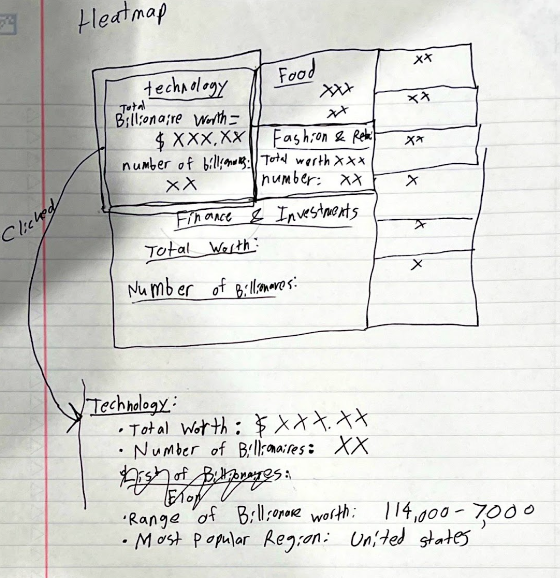 Heatmap
technology
Total
Billionaire Worth=
$ XXX.XX
number of billionaires:
XX
Food
XXX
XX
Fashion & Reta
Total worth XXX
number: XX
XX
XX
XX
X
X
X
Finance & Investments
Total Worth:
Number of Billionares:
Clicked
Technology:
• Total Worth: $ XXX.XX
• Number of Billionaires: XX
List of Billionayes:
Elon
• Range of Billionare worth: 114,000 - 7,000
• Most Popular Region: United states